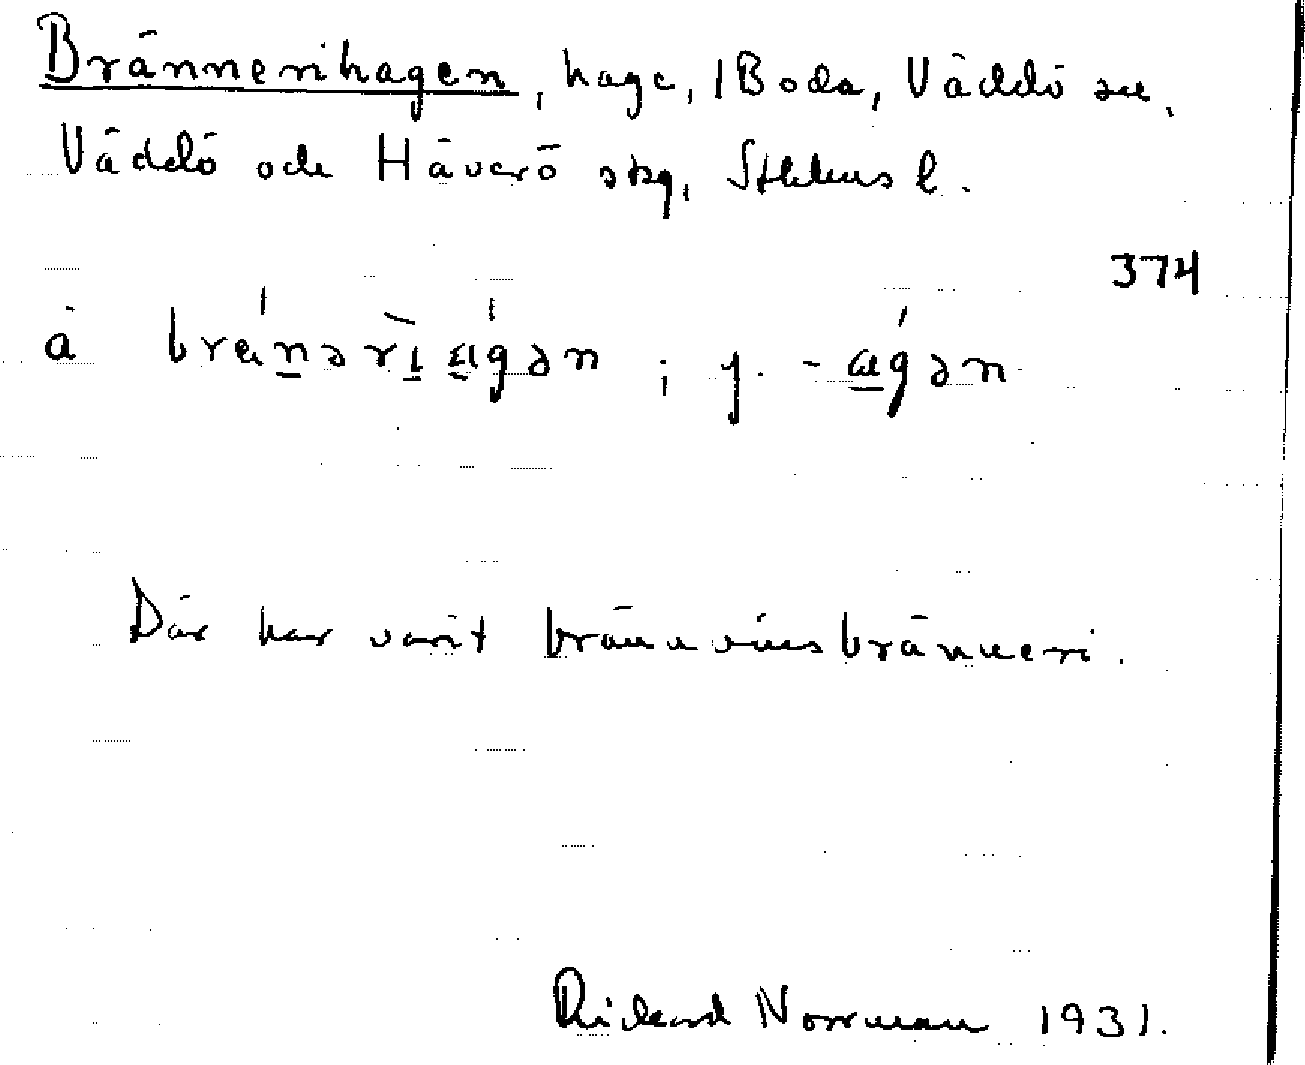 Brännerihagen, hage, 1 Boda, Väddö sn,
Väddö och Häverö skg, Sthlms l.
374
å
Där har varit brännvinsbränneri.
Rickard Norrman 1931.